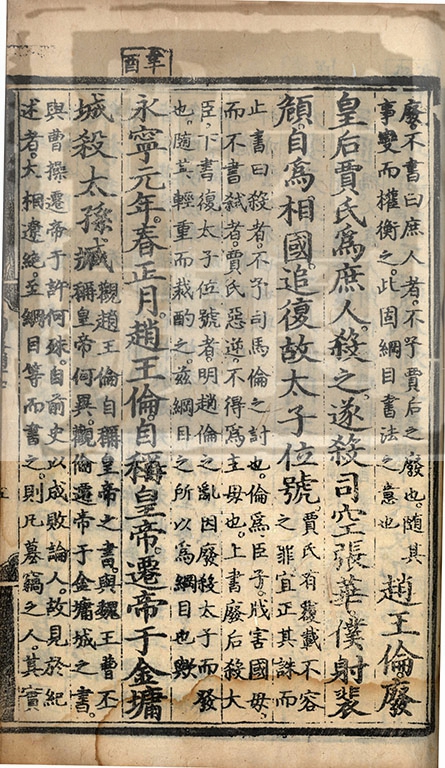 辛酉
廢。不書曰庶人者。不予賈后之廢也。隨其
事變而權衡之。此固綱目書法之意也
趙王倫廢
皇后賈氏爲庶人。殺之。遂殺司空張華。僕射裴
頠。自爲相國。追復故太子位號
賈氏有覆載不容
之罪宜正其誅而
止書曰殺者。不予司馬倫之討也。倫爲臣子。戕害國母。
而不書弒者。賈氏惡逆。不得爲主母也。上書廢后殺大
臣。下書復太子位號者。明趙倫之亂因廢殺太子而發
也。隨其輕重而裁酌之。茲綱目之所以爲綱目也歟
永寧元年。春正月。趙王倫自稱皇帝。遷帝于金墉
城殺太孫臧
觀趙王倫自稱皇帝之書。與魏王曹丕
稱皇帝何異。觀倫遷帝于金墉城之書。
與曹操遷帝于許何殊。自前史以成敗論人。故見於紀
述者。大相遼絶。至綱目等而書之。則凡簒竊之人。其實